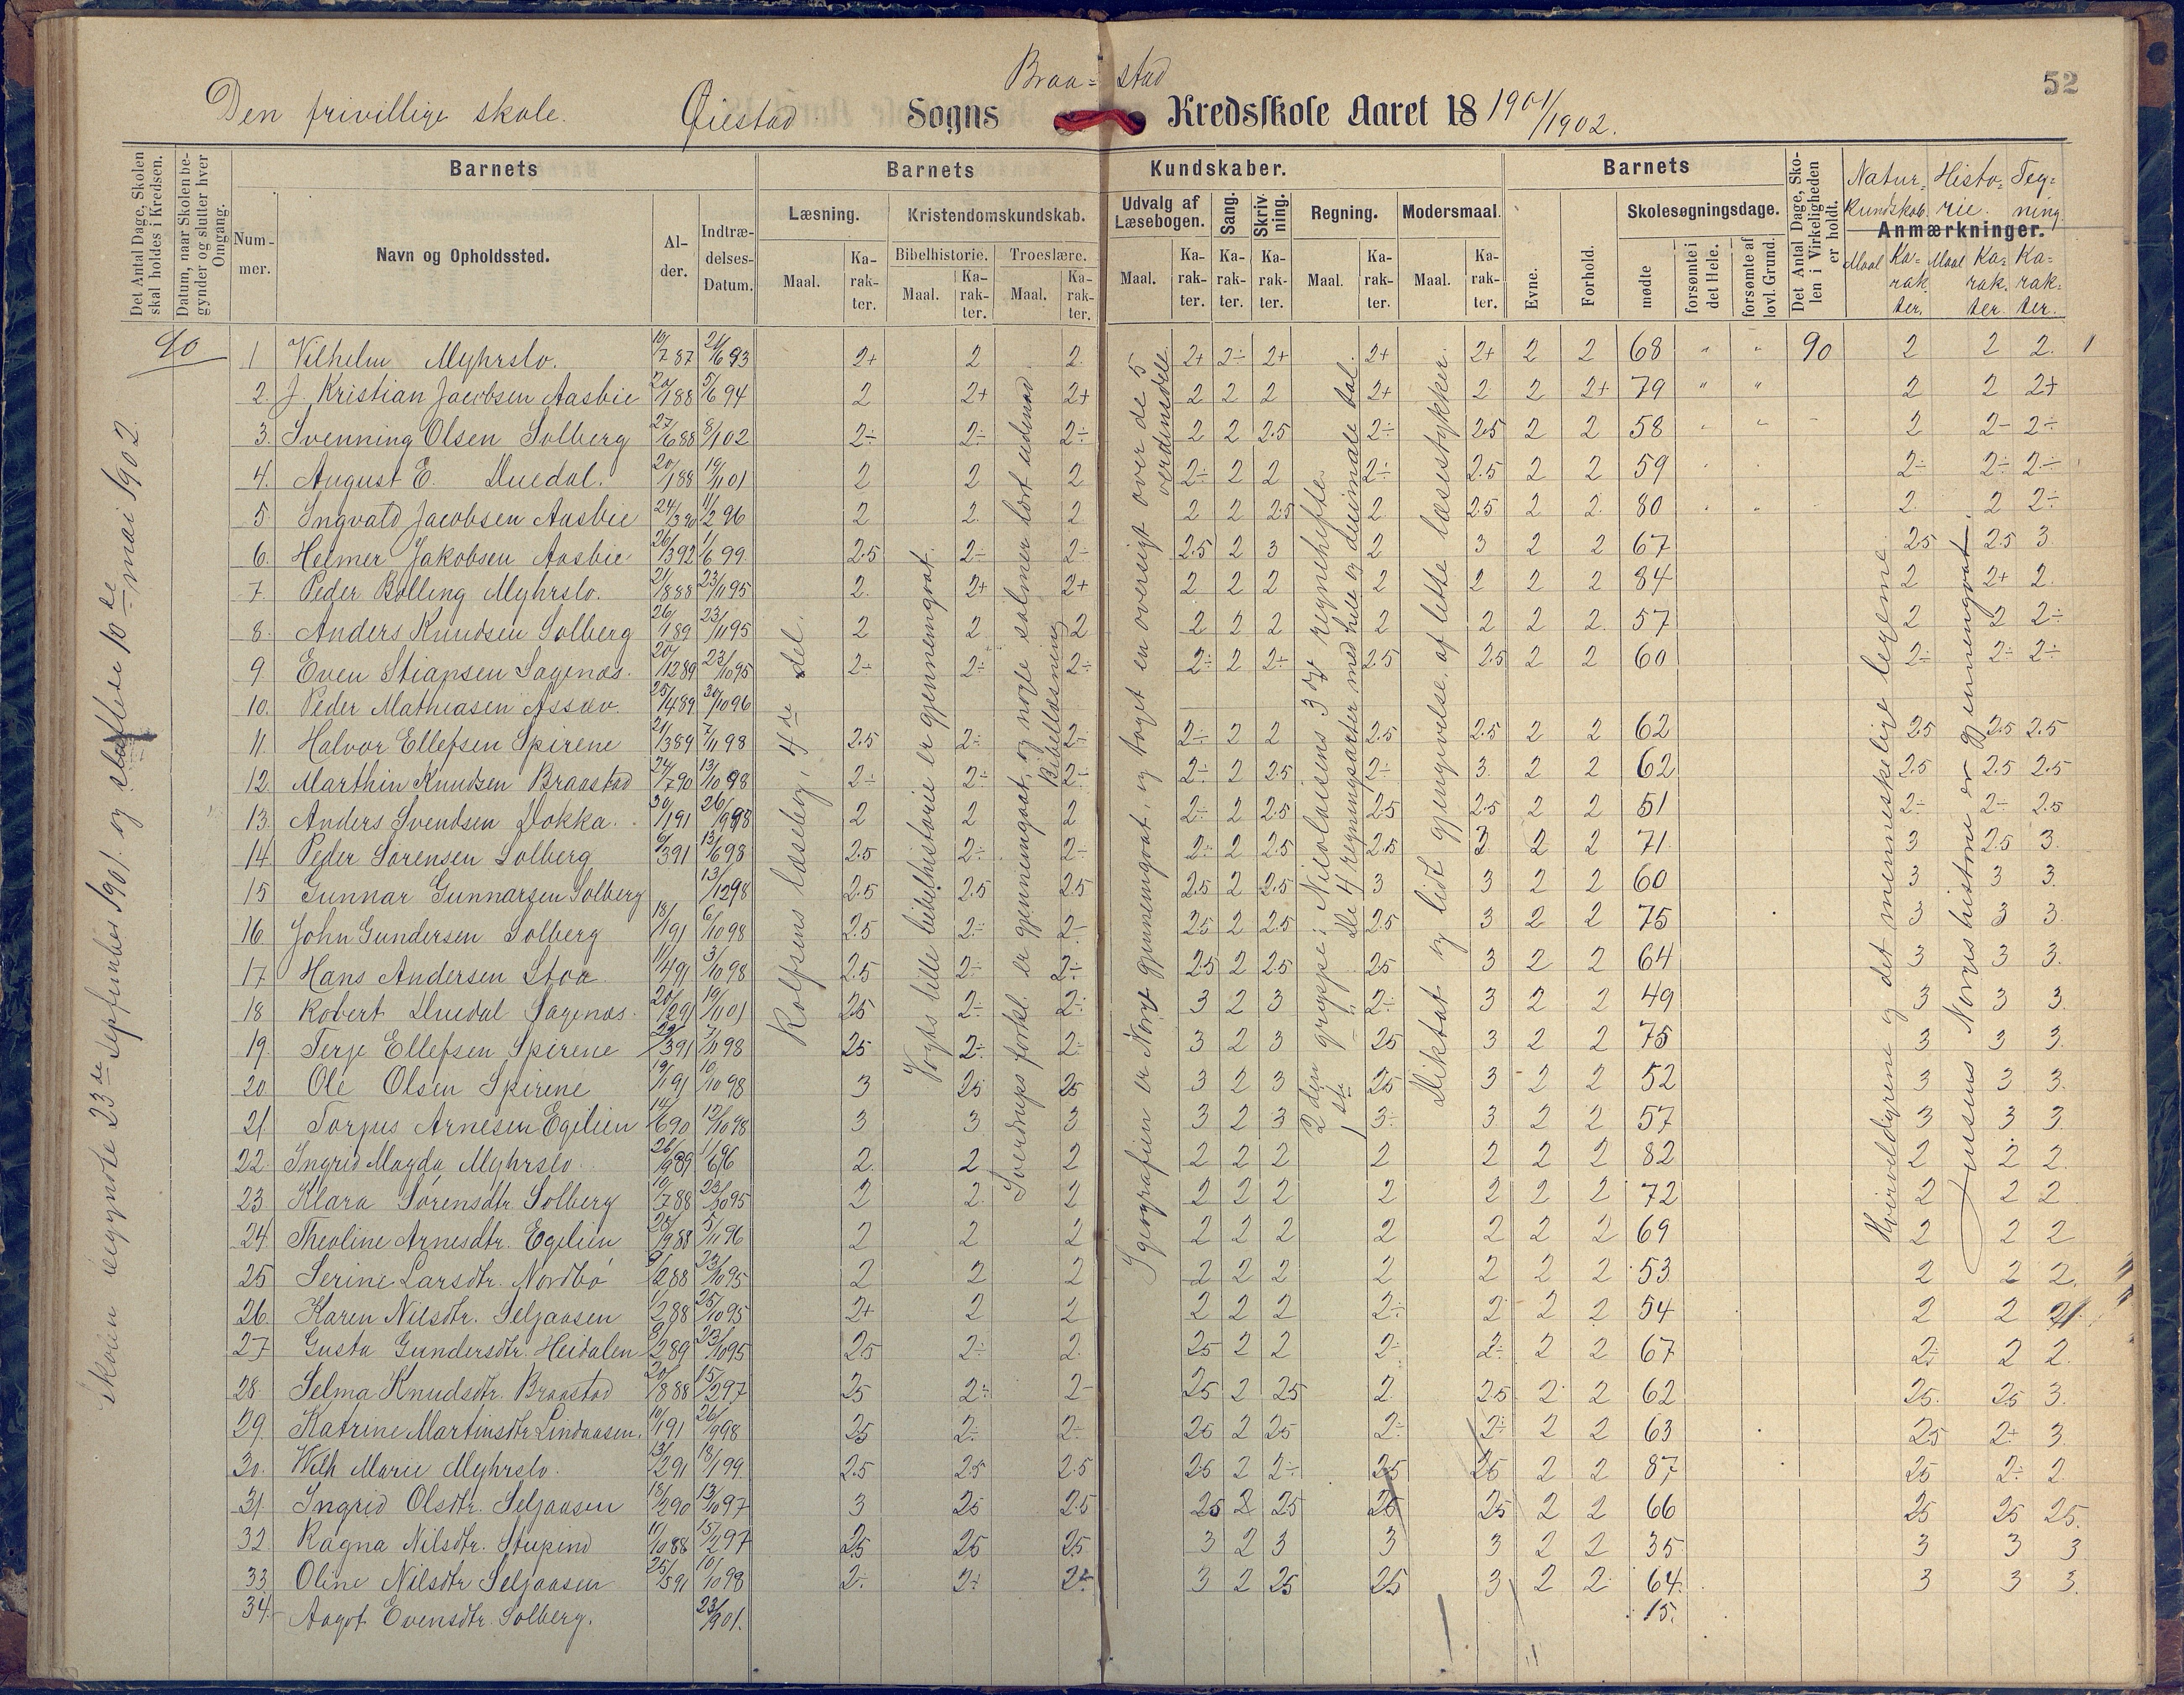 52
Braa- stad
Den frivillige skole. Øiestad Sogns Kredsskole Aaret 18 1901/1902.
Det Antal Dage, Skolen skal holdes i Kredsen.
Datum, naar Skolen begynder og slutter hver Omgang.
Barnets Barnets Kundskaber. Barnets
Det Antal Dage, Skolen i Virkeligheden er holdt.
Natur- Histo- Teg-
kundskab. rie. ning.
Anmærkninger.
Nummer. Navn og Opholdssted. Alder. Indtrædelses-Datum.
Læsning. Kristendomskundskab. Udvalg af Læsebogen. Sang. Skrivning. Regning. Modersmaal. Evne. Forhold. Skolesøgningsdage.
Bibelhistorie. Troeslære.
Maal. Karakter. Maal. Karakter. Maal. Karakter. Maal. Karakter. Karakter. Karakter. Maal. Karakter. Maal. Karakter. mødte forsømte i det Hele. forsømte af lovl. Grund. Maal Karakter. Maal Karakter. Karakter.
90
Skolen begyndte 23de September 1901. og sluttede 10de mai 1902.
Rolfsens læsebog, 4de del.
Vogts lille bibelhistorie er gjennemgaat.
Sverdrups forkl. er gjennemgaat, og nogle salmer lært udenad.
Bibellæsning
I geografien er Norge gjennemgaat, og taget en oversigt over de 5 verdensdele.
2den gruppe: Nicolaisens 3die regnehefte.
1ste —"— De 4 regningsarter med hele og decimale tal.
Diktat og lidt gjengivelse af lette læsestykker.
Hvirveldyrene og det menneskelige legeme.
Jensens Norges historie er gjennemgaat.
1 Vilhelm Myhrslo. 10/7 87 21/6 93 2+ 2 2. 2+ 2÷ 2+ 2+ 2+ 2 2 68 " " 90 2 2 2.
2. J. Kristian Jacobsen Aasbie 20/1 88 5/6 94 2 2+ 2+ 2 2 2 2+ 2 2 2+ 79 " " 2 2 2+
3. Svenning Olsen Solberg 27/6 88 8/1 02 2÷ 2÷ 2÷ 2 2 2.5 2÷ 2.5 2 2 58 " " 2 2÷ 2÷
4. August E. Duedal. 20/1 88 19/11 01 2 2 2 2÷ 2 2 2÷ 2.5 2 2 59 2÷ 2÷ 2÷
5. Ingvald Jacobsen Aasbie 24/3 90 11/2 96 2 2. 2 2 2 2.5 2 2.5 2 2. 80 2. 2 2÷
6. Helmer Jakobsen Aasbie 26/3 92 1/6 99 2.5 2÷ 2÷ 2.5 2 3 2 3 2 2 67 2.5 2.5 3
7. Peder Bolling Myhrslo. 21/8 88 23/11 95 2. 2+ 2+ 2 2 2 2 2 2 2 84 2 2+ 2.
8. Anders Knudsen Solberg 26/1 89 23/11 95 2 2 2 2 2 2 2 2 2 2. 57 2 2 2÷
9. Even Stiansen Sagenæs. 20/12 89 23/10 95 2÷ 2÷ 2÷ 2÷ 2 2÷ 2.5 2.5 2 2 60 2÷ 2÷ 2÷
10. Peder Mathiasen Assæv. 25/4 89 30/10 96
11 Halvor Ellefsen Spirene 21/3 89 7/11 98 2.5 2÷ 2÷ 2÷ 2 2 2.5 2.5 2 2 62 2.5 2.5 2.5
12. Marthin Knudsen Braastad 24/7 90 13/10 98 2÷ 2÷ 2÷ 2÷ 2 2.5 2÷ 3. 2 2 62 2.5 2.5 2.5
13. Anders Svendsen Dokka. 30/1 91 26/9 98 2 2 2 2÷ 2 2.5 2.5 2.5 2 2 51 2÷ 2÷ 2.5
14. Peder Sørensen Solberg 6/3 91 13/6 98 2.5 2÷ 2÷ 2÷ 2 2.5 2.5 3 2 2 71. 3 2.5 3.
15 Gunnar Gunnarsen Solberg 13/12 98 2.5 2.5 2.5 2.5 2 2.5 3 3 2 2 60 3 3 3.
16. John Gundersen Solberg 18/1 91 6/10 98 2.5 2÷ 2÷ 2.5 2 2.5 2.5 3 2 2 75 3 3 3.
17 Hans Andersen Stoa. 11/4 91 3/10 98 2.5 2÷ 2÷ 2.5 2 2.5 25 3 2 2 64 3 3 3.
18 Robert Duedal Sagenæs. 20/2 91 19/11 01 2.5 2÷ 2÷ 3 2 3 2÷ 3 2 2 49 3 3 3.
19. Terje Ellefsen Spirene 22/3 91 7/11 98 25 2÷ 2÷ 3 2 3 25 3 2 2 75 3 3 3.
20 Ole Olsen Spirene 19/1 91 10/10 98 3 25 25 3 2 3 25 3 2 2 52 3 3 3.
21 Torjus Arnesen Egelien 14/6 90 12/10 98 3 3 3 3 2 3 3÷ 3. 2 2 57 3 3 3.
22. Ingrid Magda Myhrslo 26/9 89 1/6 96 2. 2 2 2 2 2 2 2 2 2 82 2 2 2.
23 Klara Sørensdtr. Solberg 10/7 88 23/10 95 2 2. 2 2 2 2 2 2 2 2 72 2 2 2
24. Theoline Arnesdtr. Egelien 28/9 88 5/11 96 2 2 2 2 2 2 2 2 2 2 69 2 2 2
25 Serine Larsdtr. Nordbø 9/2 88 23/10 95 2 2 2 2 2 2 2 2 2 2 53 2 2 2.
26. Karen Nilsdtr. Seljaasen 11/2 88 25/10 95 2+ 2 2 2 2 2 2÷ 2 2 2 54 2 2
27 Gusta Gundersdtr. Heidalen 9/2 89 23/10 95 25 2÷ 2. 25 2 2 2÷ 2÷ 2 2 67 2÷ 2 2.
28 Selma Knudsdtr. Braastad 20/8 88 15/2 97 25 2÷ 2÷ 25 2 25 2. 25 2 2 62 25. 25 3.
29. Katrine Martinsdtr Lindaasen. 10/1 91 26/9 98 25 2÷ 2÷ 25 2 25 2÷ 2÷ 2 2 63 25 2÷ 3.
30. Wilh Marie Myhrslo. 13/2 91 18/1 99 2.5 2.5 2.5 25 2 2÷ 25 25 2 2 87 25 2÷ 2.
31. Ingrid Olsdtr. Seljaasen 18/2 90 13/10 97 3 25 2.5 25 2 25 25 25 2 2 66 25 25 25.
32 Ragna Nilsdtr. Stupend 11/10 88 15/2 97 25 25 25 3 2 3 3 3 2 2 35 3 3 3
33. Oline Nilsdtr Seljaasen 25/5 91 10/10 98 2÷ 2÷ 2÷ 3 2 25 25 3 2 2 64. 3 3 3.
34. Aagot Evensdtr. Solberg. 23/9 01. 15.